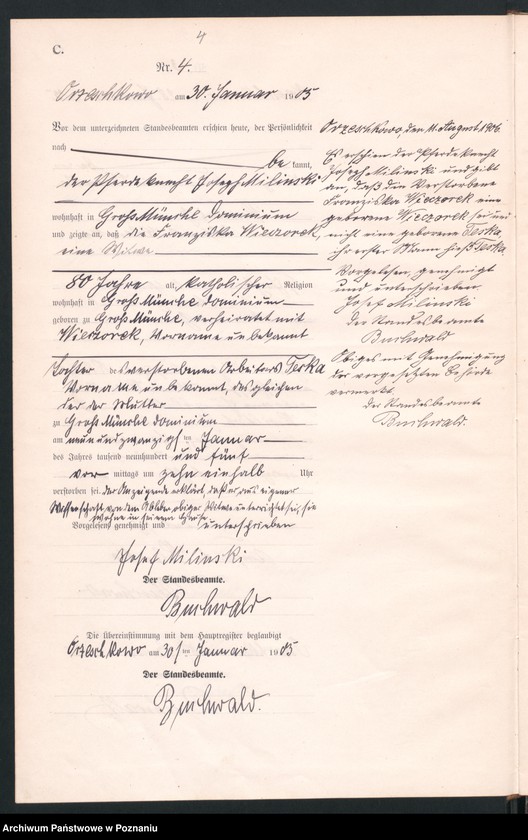 4
C.
Nr. 4.
Orzeschkowo am 30. Januar 1905
Vor dem unterzeichneten Standesbeamten erschien heute, der Persönlichkeit
nach
be kannt,
der Pferdeknecht Joseph Milinski
wohnhaft in Groß Münche Dominium
und zeigte an, daß die Franziska Wieczorek,
eine Witwe
80 Jahre alt, katholischer Religion
wohnhaft in Groß Münche Dominium
geboren zu Groß Münche, verheiratet mit
Wieczorek, Vorname unbekannt
Tochter des verstorbenen Arbeiters Terka
Vorname unbekannt, desgleichen
der der Mutter
zu Groß Münche Dominium
am neunundzwanzigsten Januar
des Jahres tausend neunhundert und fünf
vor mittags um zehn einhalb Uhr
verstorben sei. der Anzeigende erklärt, daß er aus eigener
Wissenschaft von dem Ableben obiger Witwe unterrichtet sei, sie
wohne in seinem Hause
Vorgelesen, genehmigt und unterschrieben
Josef Milinski
Der Standesbeamte.
Buchwald
Die Übereinstimmung mit dem Hauptregister beglaubigt
Orzeschkowo am 30ten Januar 1905
Der Standesbeamte.
Buchwald.
Orzeschkowo, den 11. August 1906.
Es erschien der Pferdeknecht
Joseph Milinski und gibt
an, daß die Verstorbene
Franziska Wieczorek eine
geborene Wieczorek sei und
nicht eine geborene Terka
ihr erster Mann hieß Terka
Vorgelesen, genehmigt
und unterschrieben
Josef Milinski
der Standesbeamte
Buchwald
Obiges mit Genehmigung
der vorgesetzten Behörde
vermerkt.
der Standesbeamte
Buchwald.
Archiwum Państwowe w Poznaniu